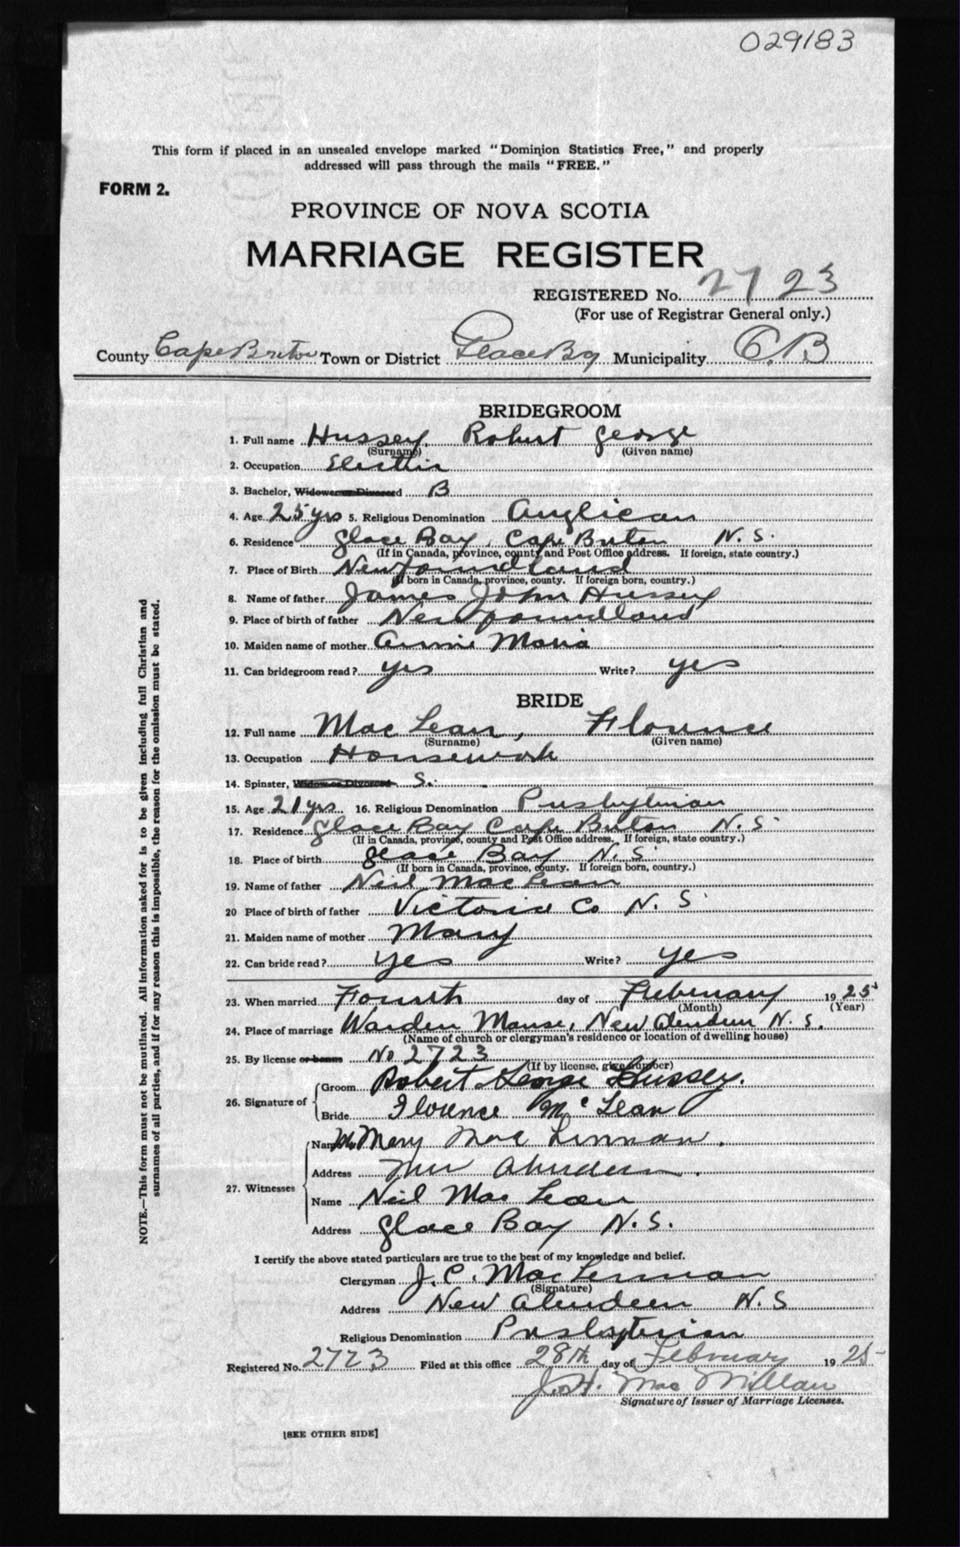 029183
This form if placed in an unsealed envelope marked "Dominion Statistics Free," and properly
addressed will pass through the mails "FREE."
FORM 2.
PROVINCE OF NOVA SCOTIA
MARRIAGE REGISTER
REGISTERED No. 2723
(For use of Registrar General only.)
County Cape Breton Town or District Glace Bay Municipality C.B
BRIDEGROOM
1. Full name Hussey. Robert George
(Surname) (Given name)
2. Occupation
3. Bachelor, Widower or Divorced B
4. Age 25 yrs 5. Religious Denomination Anglican
6. Residence Glace Bay, Cape Breton N.S.
(If in Canada, province, county and Post Office address. If foreign, state country.)
7. Place of Birth Newfoundland
(If born in Canada, province, county. If foreign born, country.)
8. Name of father James John Hussey
9. Place of birth of father Newfoundland
10. Maiden name of mother Annie Maria
11. Can bridegroom read? yes Write? yes
BRIDE
12. Full name MacLean, Florence
(Surname) (Given name)
13. Occupation Housework
14. Spinster, Widow or Divorced S.
15. Age 21 yrs 16. Religious Denomination Presbyterian
17. Residence Glace Bay Cape Breton N.S
(If in Canada, province, county and Post Office address. If foreign, state country.)
18. Place of birth Glace Bay N.S.
(If born in Canada, province, county. If foreign born, country.)
19. Name of father Neil MacLean
20 Place of birth of father Victoria Co N.S.
21. Maiden name of mother Mary
22. Can bride read? yes Write? yes
23. When married Fourth day of February 1925
(Month) (Year)
24. Place of marriage Warden Manse, New Aberdeen N.S.
(Name of church or clergyman's residence or location of dwelling house)
25. By license or banns No 2723
(If by license, give number)
26. Signature of Groom Robert George Hussey.
Bride Florence McLean
27. Witnesses
Name Mrs Mary MacLennan.
Address New Aberdeen.
Name Neil MacLean
Address Glace Bay N.S.
I certify the above stated particulars are true to the best of my knowledge and belief.
Clergyman J.C. MacLennan
(Signature)
Address New Aberdeen N.S
Religious Denomination Presbyterian
Registered No. 2723 Filed at this office 28th day of February 1925
MacMillan
Signature of Issuer of Marriage Licenses.
[SEE OTHER SIDE]
NOTE.—This form must not be mutilated. All information asked for is to be given including full Christian and
surnames of all parties, and if for any reason this is impossible, the reason for the omission must be stated.